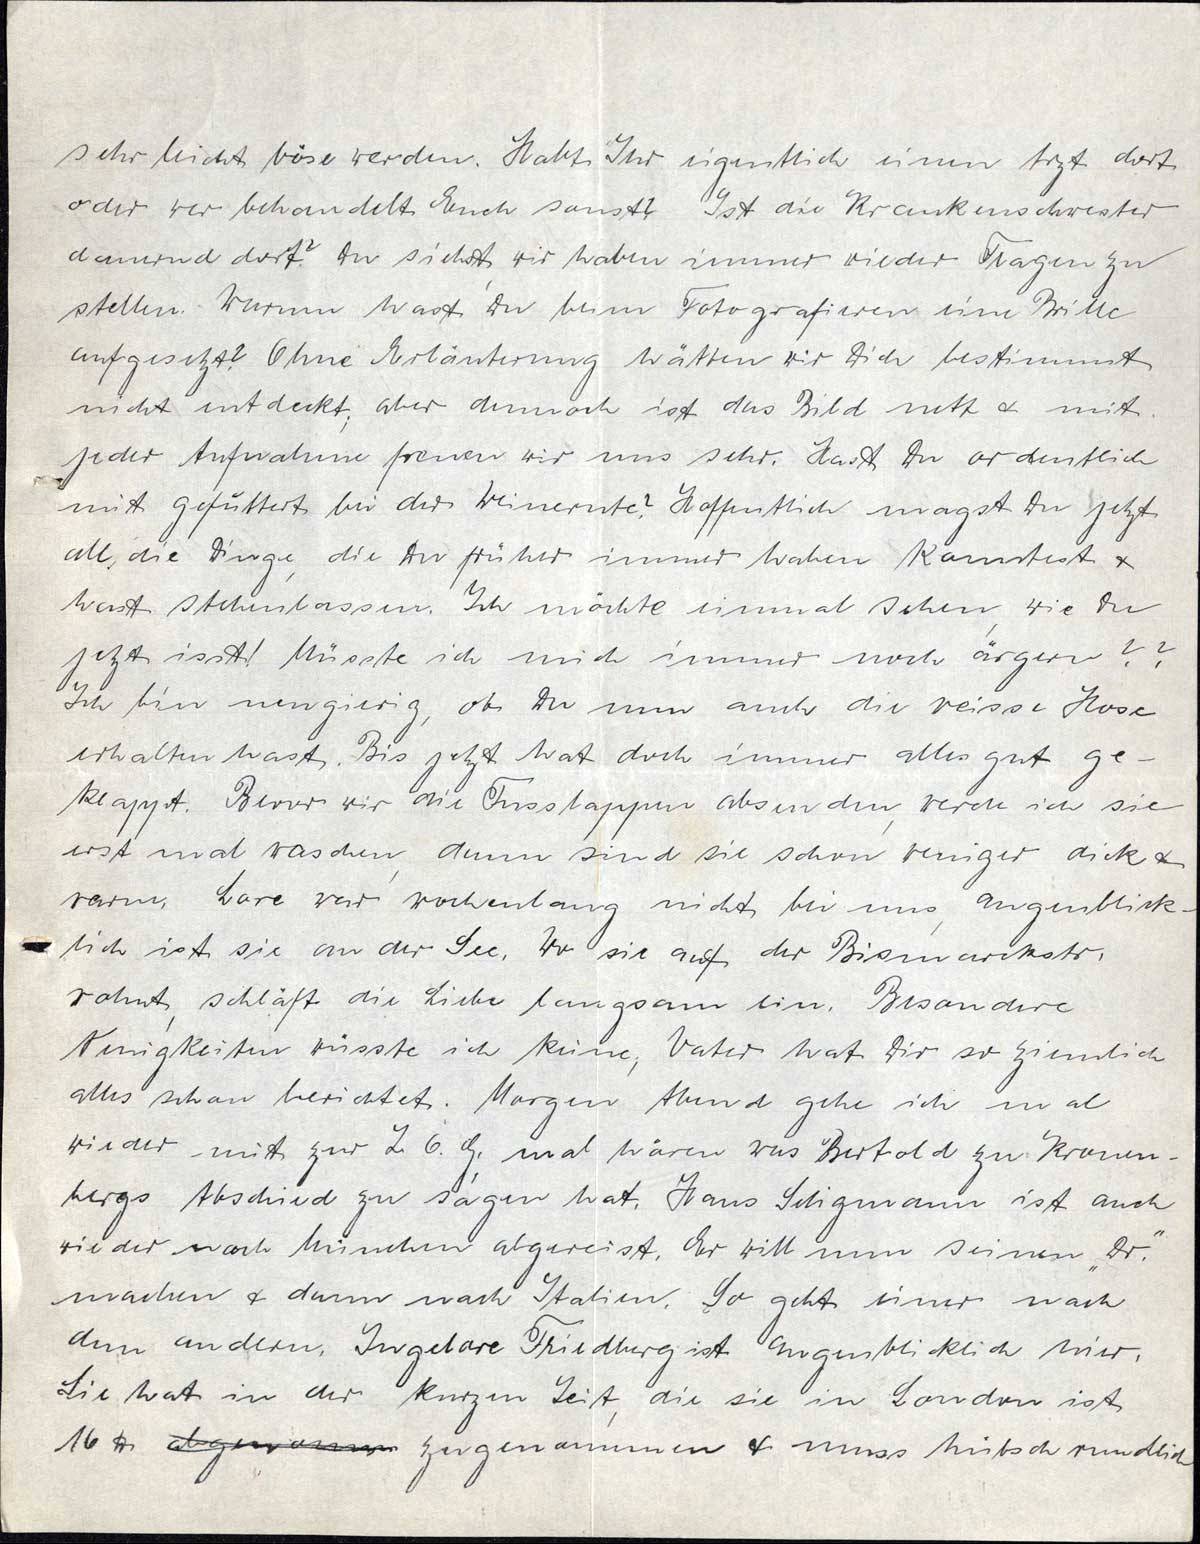 sehr leicht böse werden. Habt Ihr eigentlich einen Arzt dort
oder wer behandelt Euch sonst? Ist die Krankenschwester
dauernd dort? Du siehst, wir haben immer wieder Fragen zu
stellen. Warum hast Du beim Fotografieren eine Brille
aufgesetzt? Ohne Erläuterung hätten wir Dich bestimmt
nicht entdeckt, aber dennoch ist das Bild nett & mit
jeder Aufnahme freuen wir uns sehr. Hast Du ordentlich
mit gefuttert bei der Weinernte? Hoffentlich magst Du jetzt
all, die Dinge, die Du früher immer haben konntest &
hast stehenlassen. Ich möchte einmal sehen, wie Du
jetzt isst! Müsste ich mich immer noch ärgern??
Ich bin neugierig, ob Du nun auch die weisse Hose
erhalten hast. Bis jetzt hat doch immer alles gut ge-
klappt. Bevor wir die Fusslappen absenden, werde ich sie
erst mal waschen, dann sind sie schon weniger dick &
warm. Lore war wochenlang nicht bei uns, augenblick-
lich ist sie an der See. Wo sie auf der Bismarckstr.
wohnt, schläft die Liebe langsam ein. Besondere
Neuigkeiten wüsste ich keine, Vater hat Dir so ziemlich
alles schon berichtet. Morgen Abend gehe ich mal
wieder mit zur Z. O. G. mal hören was Bertold zu Kronen-
bergs Abschied zu sagen hat. Hans Seligmann ist auch
wieder nach München abgereist. Er will nun seinen „Dr."
machen & dann nach Italien. So geht einer nach
dem andern. Ingelore Friedberg ist augenblicklich hier.
Sie hat in der kurzen Zeit, die sie in London ist
16 ℔ abgenommen zugenommen & muss hübsch rundlich